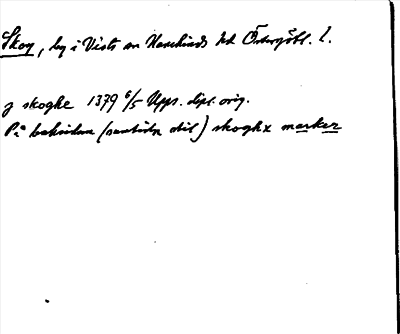 Skog, by i Vists sn Hanekinds hd Östergötl. l.
j skoghe 1379 6/5 Upps. dipl. orig.
På baksidan (samtida stil) skoghx marker